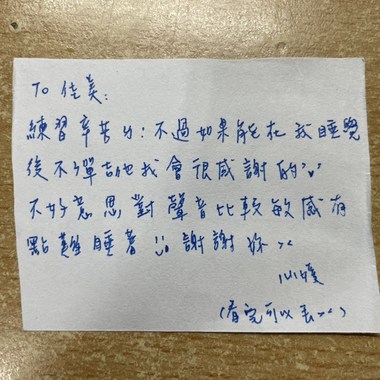 To 佳美:
練習辛苦了! 不過如果能在我睡覺
後不彈吉他我會很感謝的'v'
不好意思對聲音比較敏感有
點難睡著 謝謝妳 ><
心瑷
(看完可以丟><)